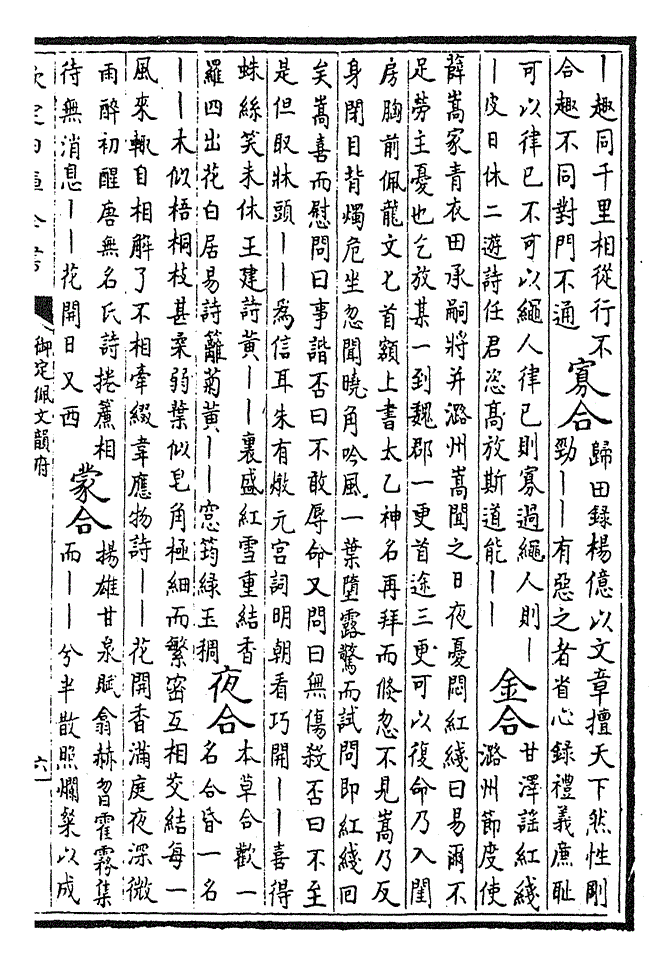 丨趣同千里相從行不
合趣不同對門不通
寡合
歸田録楊億以文章擅天下然性剛
勁丨丨有惡之者省心録禮義廉恥
可以律已不可以繩人律已則寡過繩人則丨
丨皮日休二遊詩任君恣髙放斯道能丨丨
金合
甘澤謡紅綫
潞州節度使
薛嵩家青衣田承嗣將并潞州嵩聞之日夜憂悶紅綫曰易爾不
足勞主憂也乞放某一到魏郡一更首途三更可以復命乃入閨
房胸前佩龍文匕首額上書太乙神名再拜而倏忽不見嵩乃反
身閉目背燭危坐忽聞曉角吟風一葉墮露驚而試問即紅綫回
矣嵩喜而慰問曰事諧否曰不敢辱命又問曰無傷殺否曰不至
是但取牀頭丨丨為信耳朱有燉元宫詞明朝看巧開丨丨喜得
蛛絲笑未休王建詩黄丨丨裏盛紅雪重結香
羅四出花白居易詩籬菊黄丨丨窓筠緑玉稠
夜合
本草合歡一
名合昏一名
丨丨木似梧桐枝甚柔弱葉似皂角極細而繁密互相交結每一
風來輒自相解了不相牽綴韋應物詩丨丨花開香滿庭夜深微
雨醉初醒唐無名氏詩捲簾相
待無消息丨丨花開日又西
蒙合
揚雄甘泉賦翕赫曶霍霧集
而丨丨兮半散照爛粲以成
欽定四庫全書
御定佩文韻府